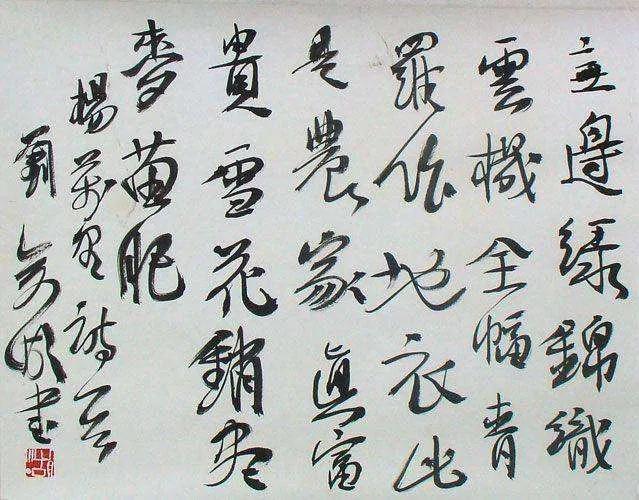 無邊綠錦織
雲機全幅青
羅作地衣此
是農家真富
貴雪花銷盡
麥苗肥
楊萬里詩
書